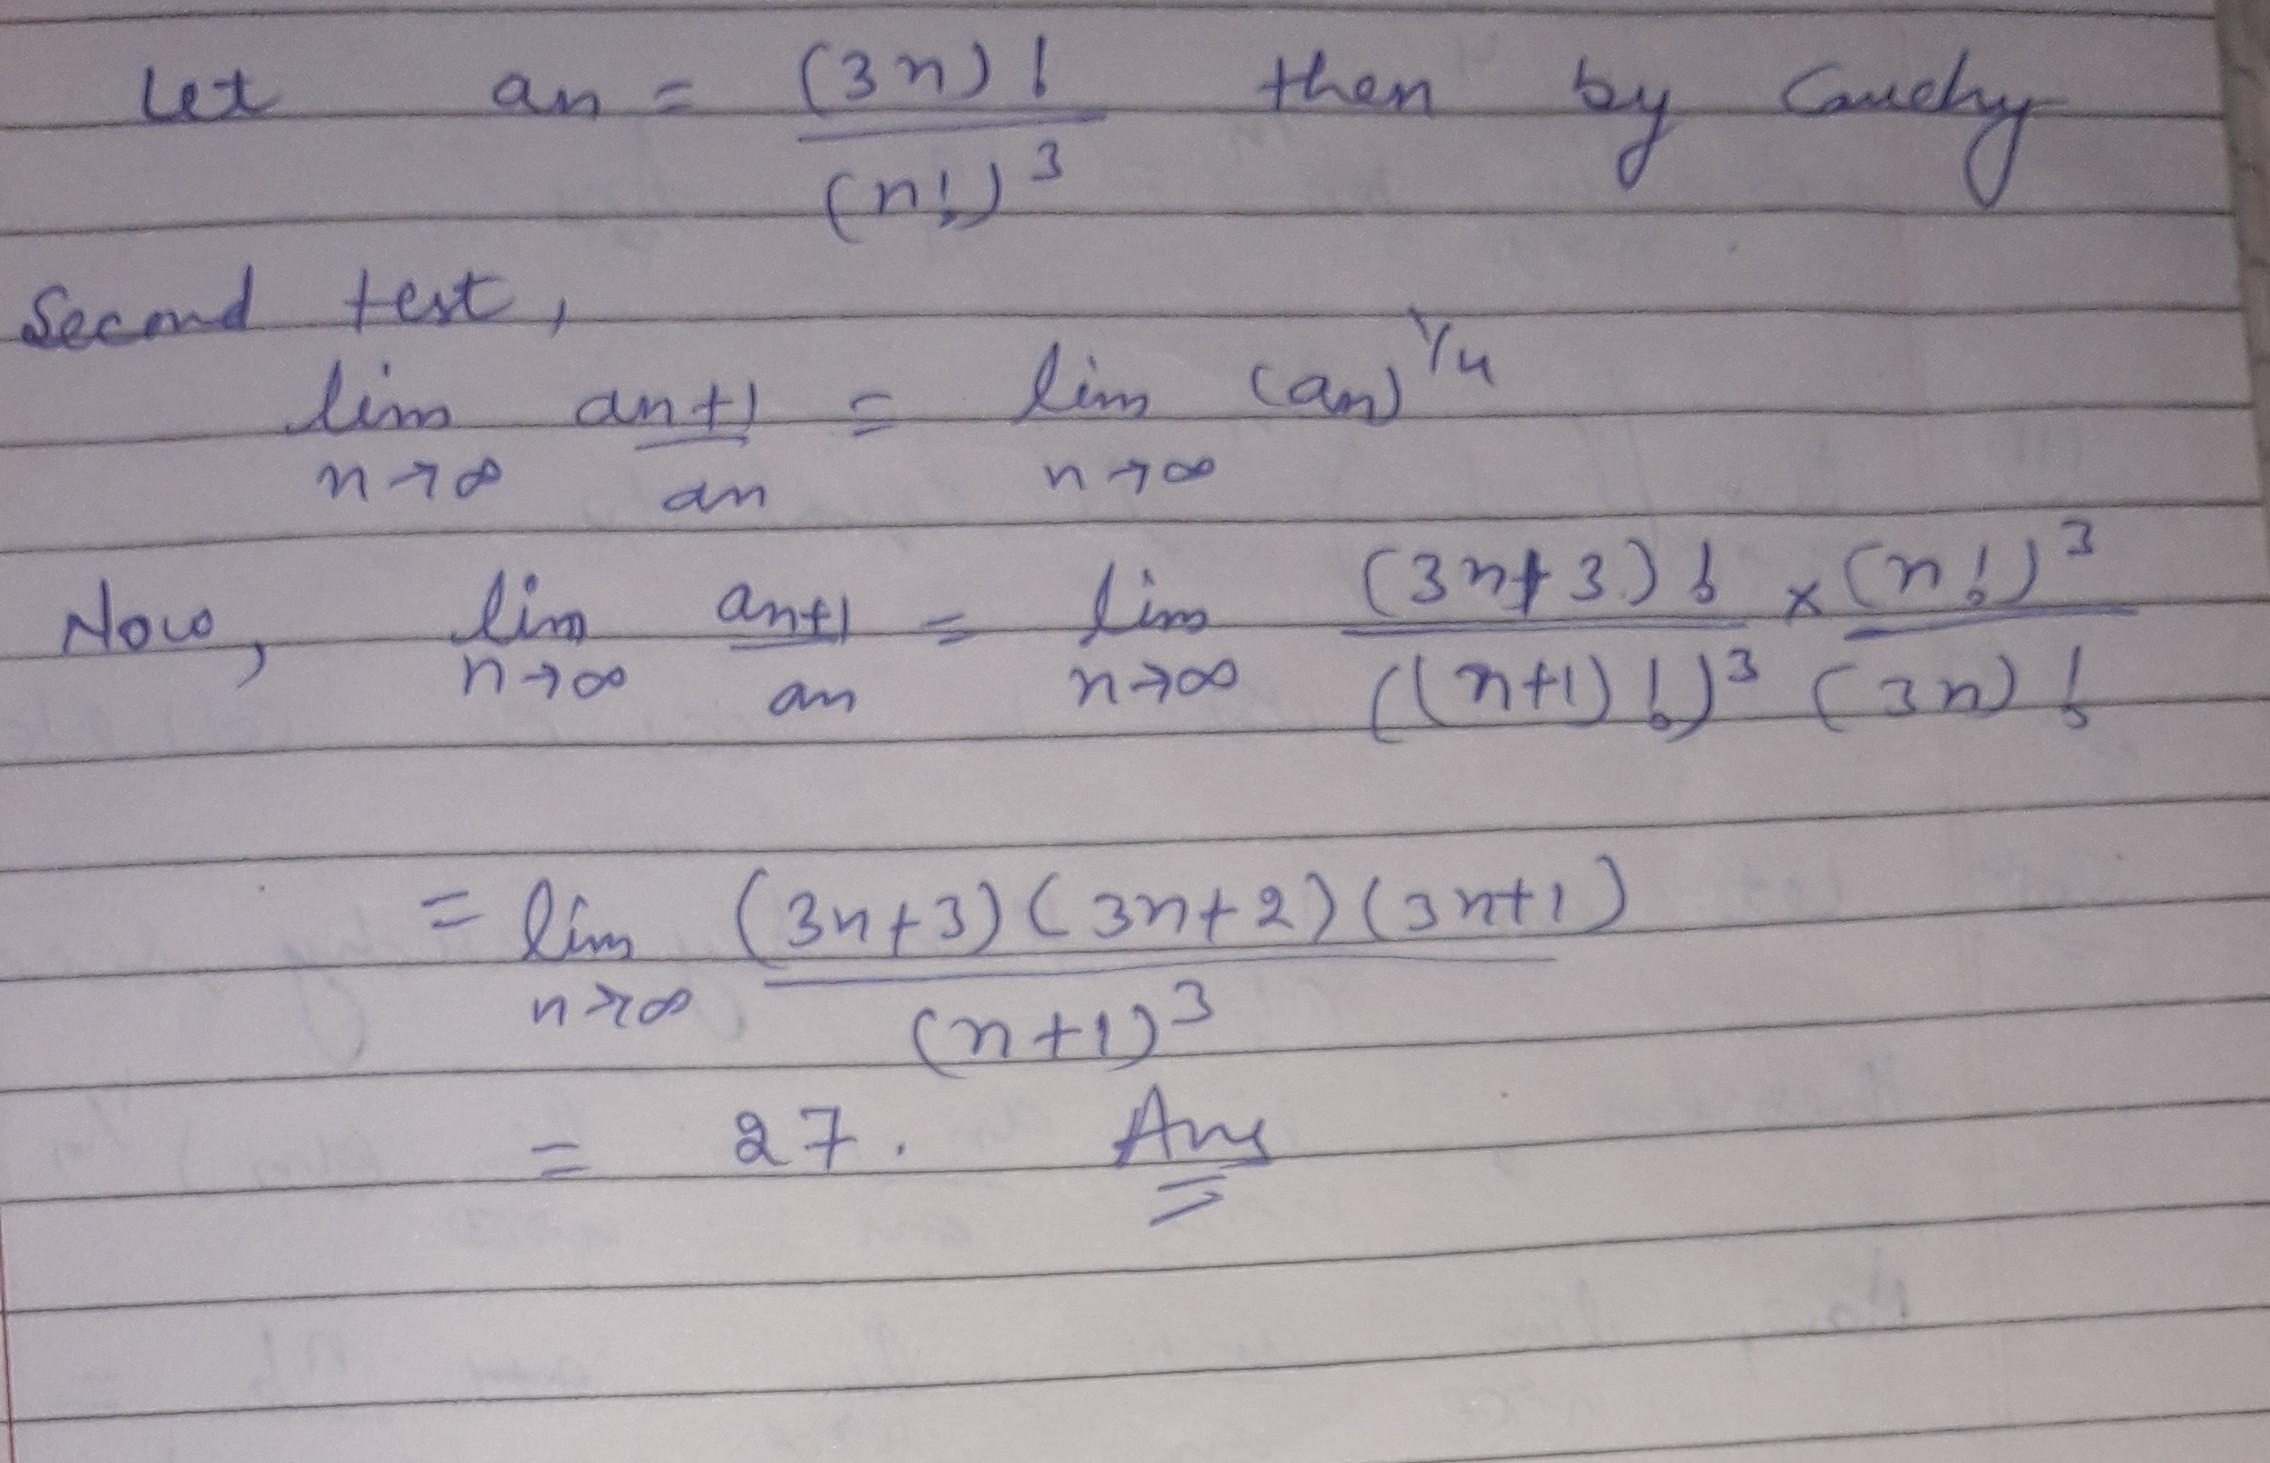 Let an = (3n)! / (n!)³ then by Cauchy
Second test,
lim n→∞ an+1 / an = lim n→∞ (an)^1/n
Now, lim n→∞ an+1 / an = lim n→∞ (3n+3)! / ((n+1)!)³ × (n!)³ / (3n)!
= lim n→∞ (3n+3)(3n+2)(3n+1) / (n+1)³
= 27. Ans